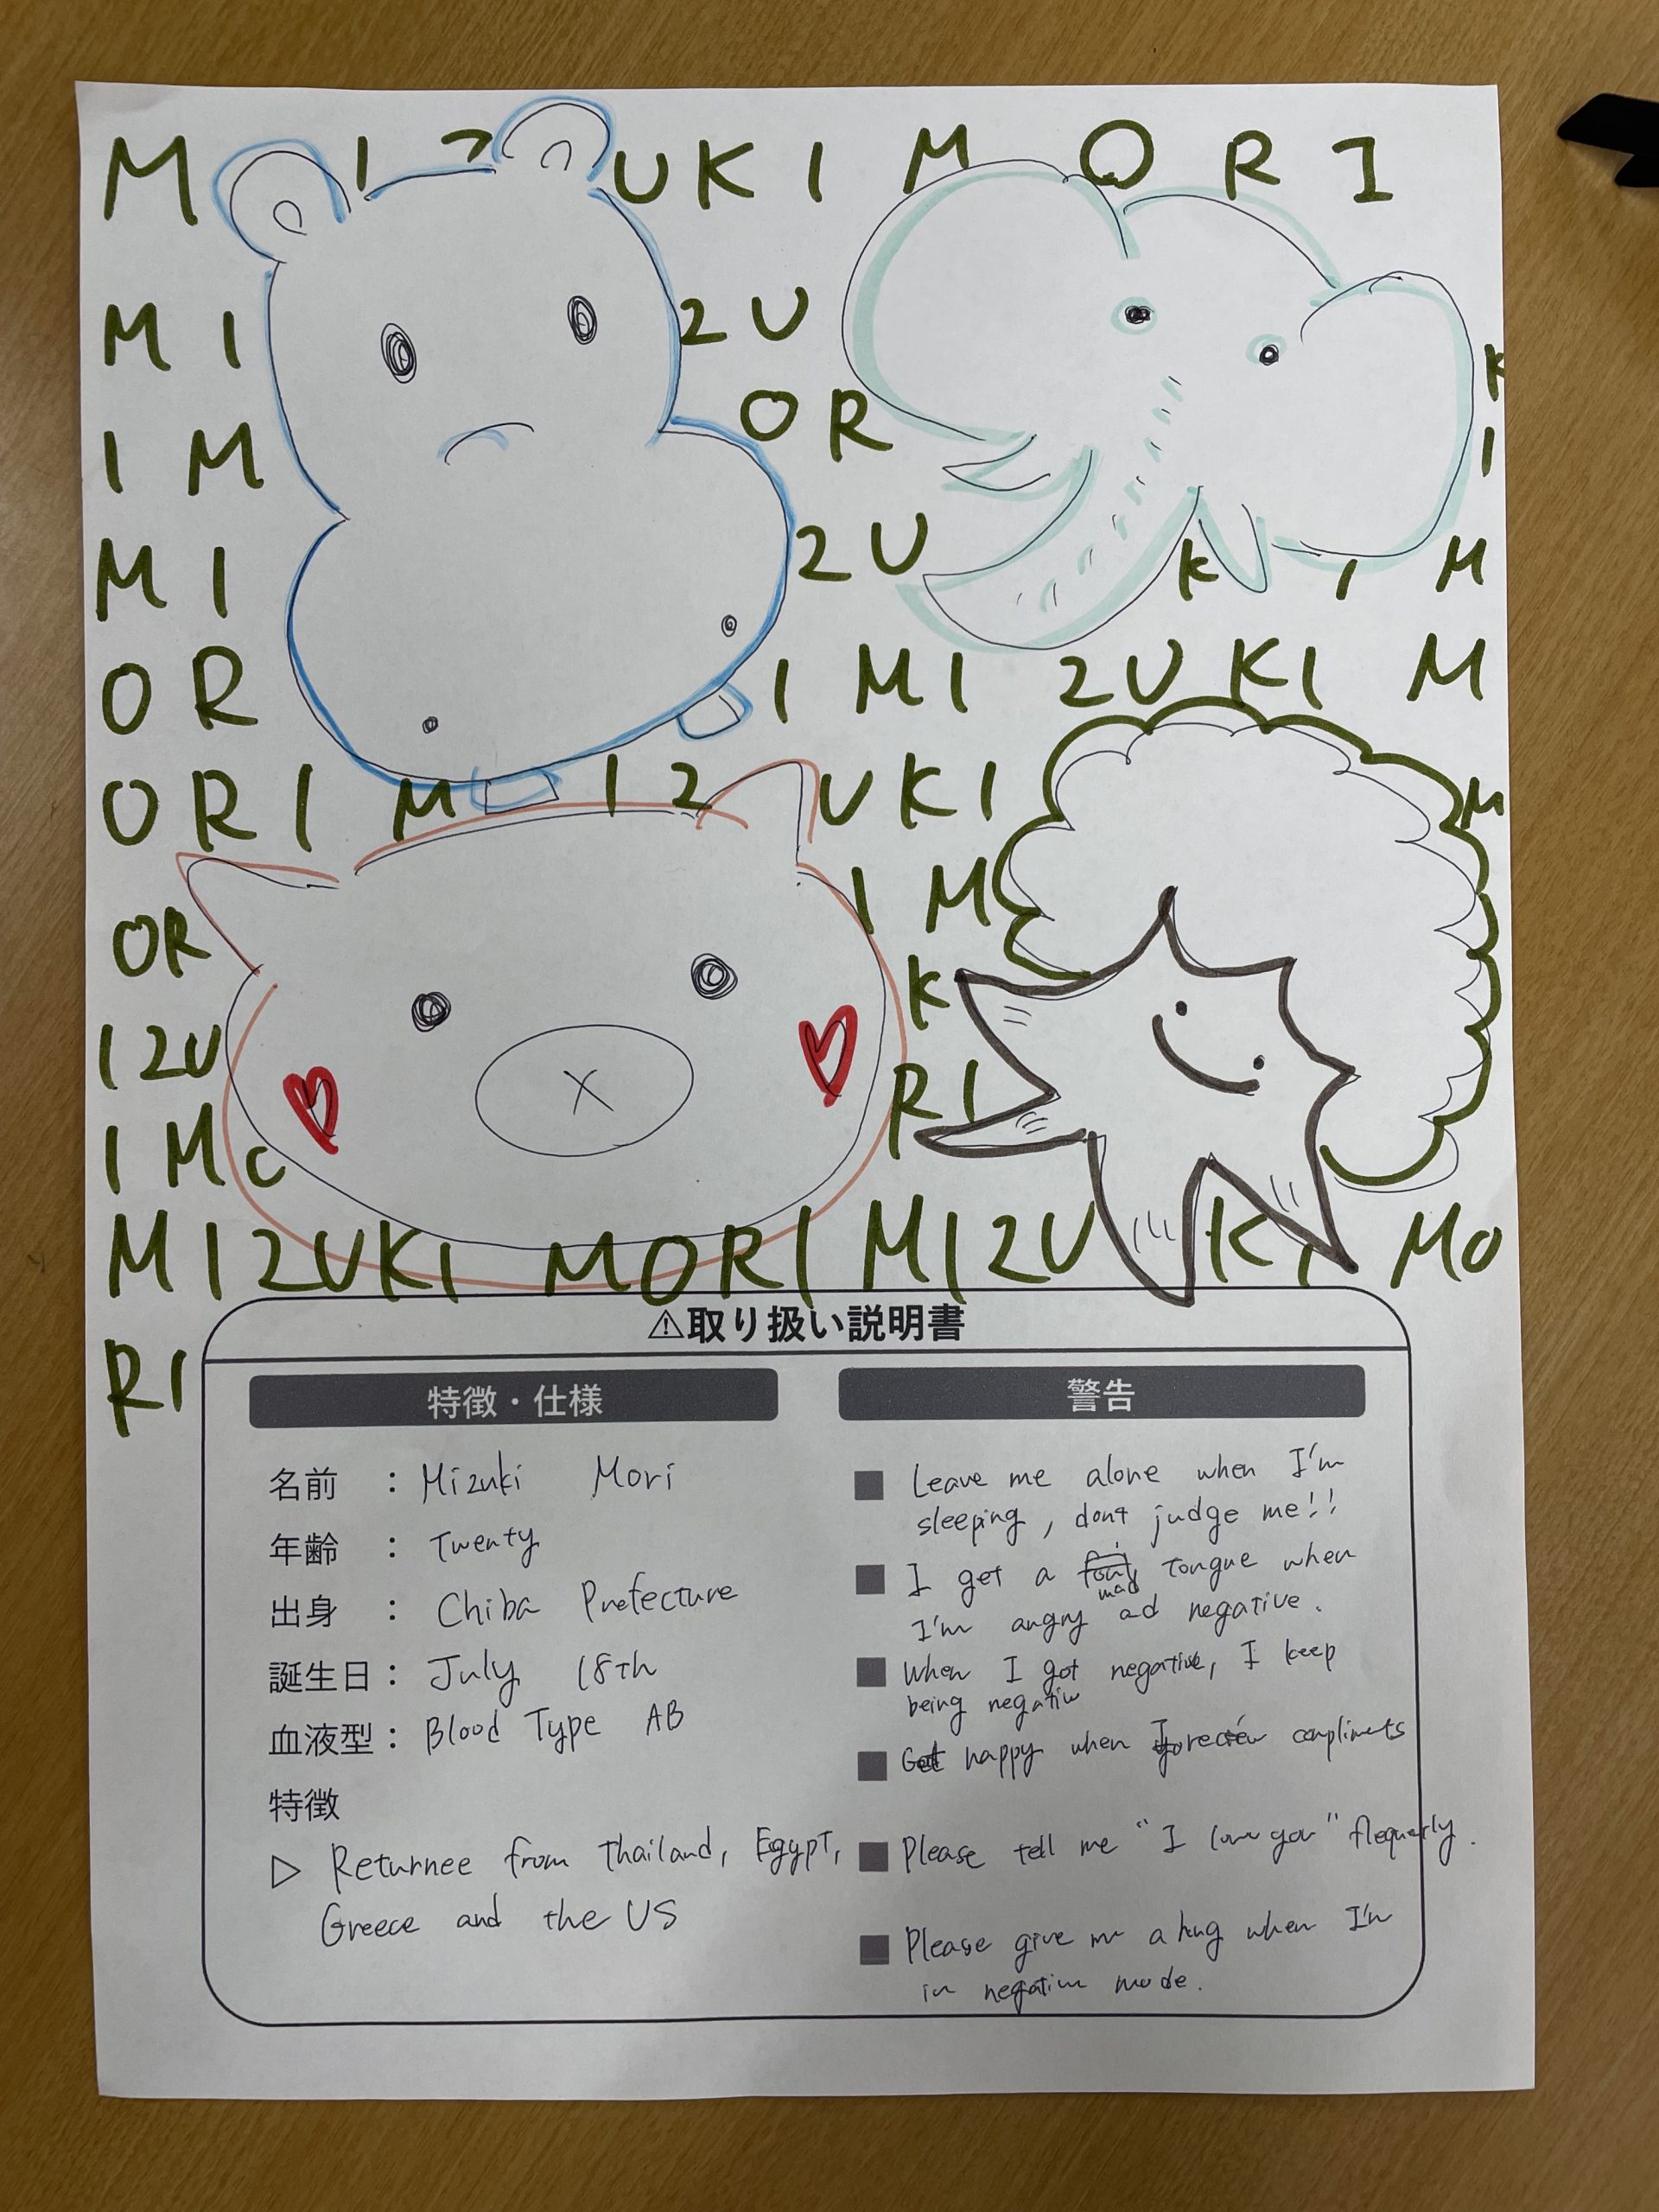 M I Z UKI MORI
MI 2U K
IM OR I
MI 2U KIM
OR IMI 2UKI M
ORI M I2 UKI M
OR I M
I2U K
IM O RI
MI2UKI MORI MI2U KI MO
RI
⚠取り扱い説明書
特徴・仕様
名前 : Mizuki Mori
年齢 : Twenty
出身 : Chiba Prefecture
誕生日 : July 18th
血液型 : Blood Type AB
特徴
▷ Returnee from Thailand, Egypt,
Greece and the US
警告
■ Leave me alone when I'm
sleeping, dont judge me!!
■ I get a mad tongue when
I'm angry ad negative.
■ When I got negative, I keep
being negativ
■ Get happy when I compliments
■ Please tell me "I love you" flequently.
■ Please give me a hug when I'm
in negative mode.